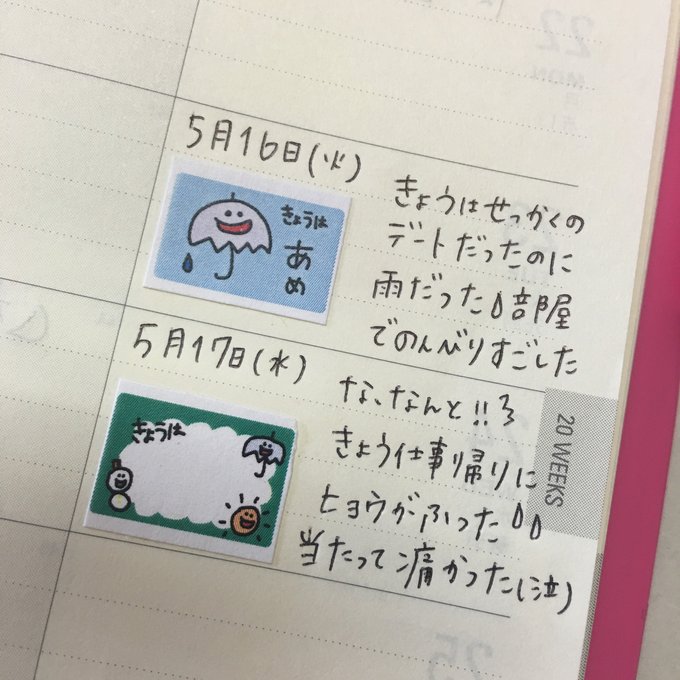 5月16日(火)
きょうは
あめ
きょうはせっかくの
デートだったのに
雨だった部屋
でのんびりすごした
5月17日(水)
きょうは
な、なんと!!
きょう仕事帰りに
ヒョウがふった
当たって痛かった(泣)
20 WEEKS
22
MON
25